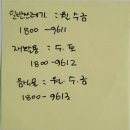 일반쓰레기 : 월.수.금
1800 - 9611
재활용 : 수.토
1800 - 9612
음식물 : 월.수.금
1800 - 9613